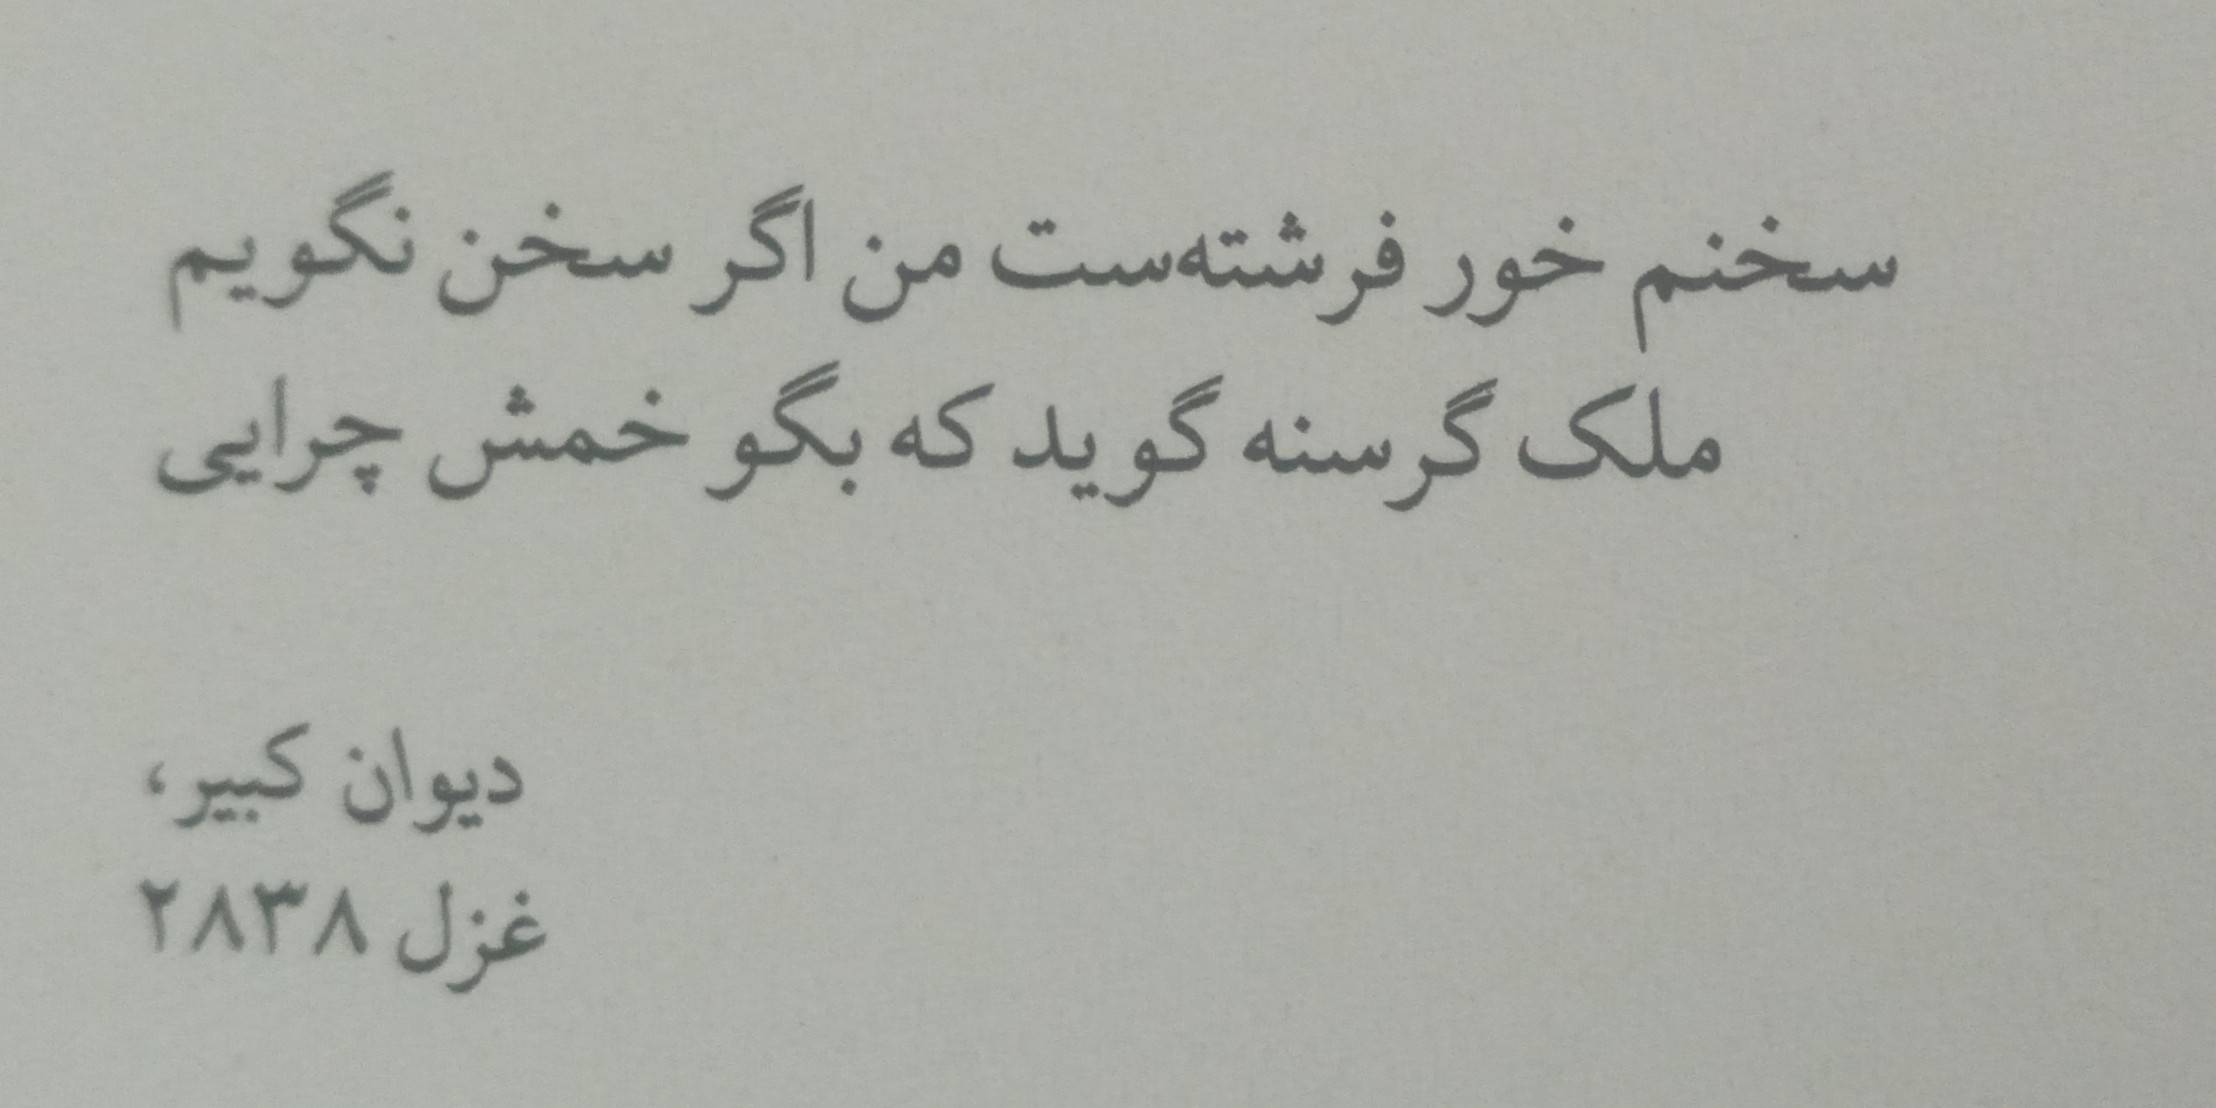 سخنم خور فرشته‌ست من اگر سخن نگویم
ملک گرسنه گوید که بگو خمش چرایی
دیوان کبیر،
غزل ۲۸۳۸